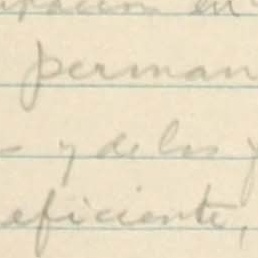 pación en
perman
- y de los f
eficiente,